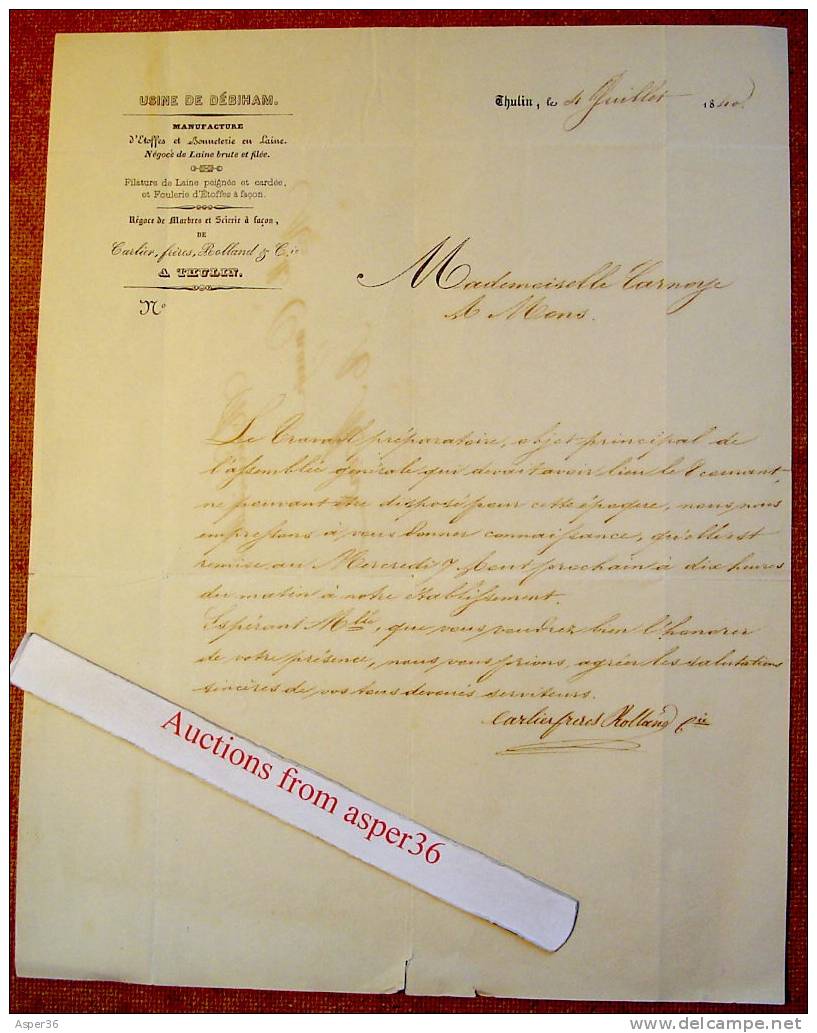 USINE DE DÉBIHAM.
MANUFACTURE
d'Etoffes et Bonneterie en Laine.
Négoce de Laine brute et filée.
Filature de Laine peignée et cardée,
et Foulerie d'Étoffes à façon.
Négoce de Marbres et Scierie à façon,
DE
Carlier, frères, Rolland & C.ie
A THULIN.
N.o
Thulin, le 4 Juillet 1840
Mademoiselle Carnoye
A Mons.
Le travail préparatoire, objet principal de
l'assemblée générale qui devait avoir lieu le 8 courant,
ne pouvant être disposé pour cette époque, nous nous
empressons à vous donner connaissance, qu'elle est
remise au Mercredi 7 Aout prochain à dix heures
du matin à notre établissement.
Espérant Mlle, que vous voudrez bien l'honorer
de votre présence, nous vous prions, agréer les salutations
sincères de vos tous dévoués serviteurs.
Carlier frères Rolland Cie
Auctions from asper36
Asper36
www.delcampe.net